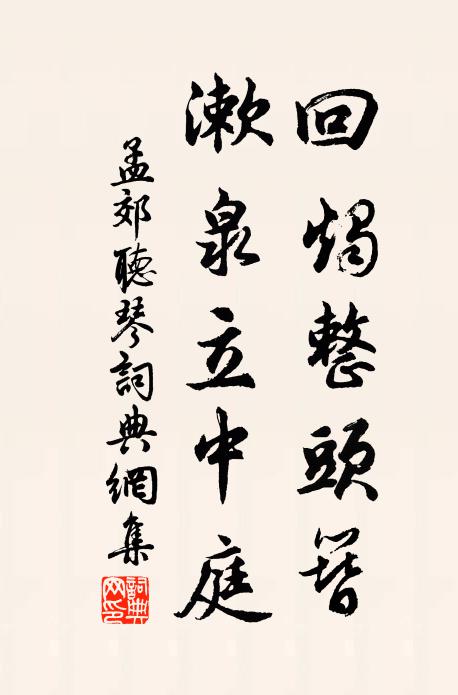 回燭整頭簪
漱泉立中庭
孟郊聽琴詞典網集
詞典網印